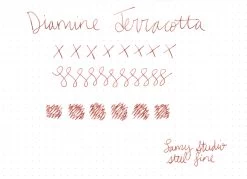 Diamine Terracotta
x x x x x x x x
Lamy Studio
steel fine